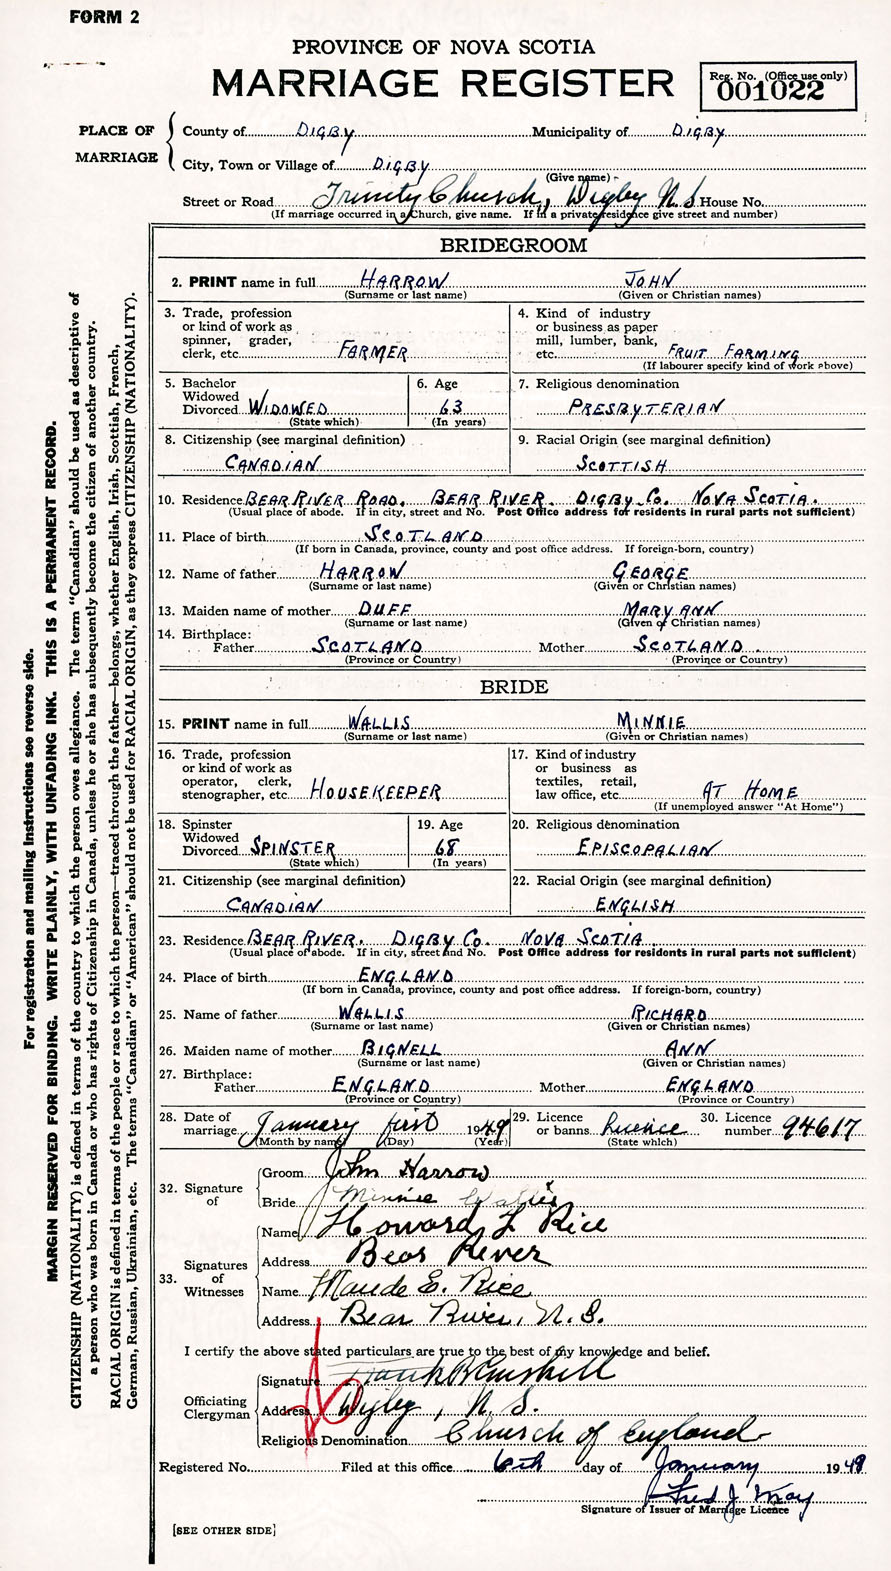 FORM 2
PROVINCE OF NOVA SCOTIA
MARRIAGE REGISTER
Reg. No. (Office use only)
001022
PLACE OF MARRIAGE
County of DIGBY Municipality of DIGBY
City, Town or Village of DIGBY
(Give name)
Street or Road Trinity Church, Digby N.S House No.
(If marriage occurred in a Church, give name. If in a private residence give street and number)
BRIDEGROOM
2. PRINT name in full HARROW JOHN
(Surname or last name) (Given or Christian names)
3. Trade, profession or kind of work as spinner, grader, clerk, etc. FARMER
4. Kind of industry or business as paper mill, lumber, bank, etc. FRUIT FARMING
(If labourer specify kind of work above)
5. Bachelor Widowed Divorced WIDOWED
(State which)
6. Age 63
(In years)
7. Religious denomination
PRESBYTERIAN
8. Citizenship (see marginal definition)
CANADIAN
9. Racial Origin (see marginal definition)
SCOTTISH
10. Residence BEAR RIVER ROAD. BEAR RIVER. DIGBY CO. NOVA SCOTIA.
(Usual place of abode. If in city, street and No. Post Office address for residents in rural parts not sufficient)
11. Place of birth SCOTLAND
(If born in Canada, province, county and post office address. If foreign-born, country)
12. Name of father HARROW GEORGE
(Surname or last name) (Given or Christian names)
13. Maiden name of mother DUFF MARY ANN
(Surname or last name) (Given or Christian names)
14. Birthplace:
Father SCOTLAND Mother SCOTLAND
(Province or Country) (Province or Country)
BRIDE
15. PRINT name in full WALLIS MINNIE
(Surname or last name) (Given or Christian names)
16. Trade, profession or kind of work as operator, clerk, stenographer, etc. HOUSEKEEPER
17. Kind of industry or business as textiles, retail, law office, etc. AT HOME
(If unemployed answer "At Home")
18. Spinster Widowed Divorced SPINSTER
(State which)
19. Age 68
(In years)
20. Religious denomination
EPISCOPALIAN
21. Citizenship (see marginal definition)
CANADIAN
22. Racial Origin (see marginal definition)
ENGLISH
23. Residence BEAR RIVER. DIGBY CO. NOVA SCOTIA.
(Usual place of abode. If in city, street and No. Post Office address for residents in rural parts not sufficient)
24. Place of birth ENGLAND
(If born in Canada, province, county and post office address. If foreign-born, country)
25. Name of father WALLIS RICHARD
(Surname or last name) (Given or Christian names)
26. Maiden name of mother BIGNELL ANN
(Surname or last name) (Given or Christian names)
27. Birthplace:
Father ENGLAND Mother ENGLAND
(Province or Country) (Province or Country)
28. Date of marriage January first 1949
(Month by name) (Day) (Year)
29. Licence or banns licence
(State which)
30. Licence number 94617
32. Signature of
Groom John Harrow
Bride Minnie Wallis
33. Signatures of Witnesses
Name Howard L Rice
Address Bear River
Name Maude E. Rice
Address Bear River, N.S.
I certify the above stated particulars are true to the best of my knowledge and belief.
Officiating Clergyman
Signature Frank B
Address Digby, N.S.
Religious Denomination Church of England
Registered No. Filed at this office 6th day of January 1949
Fred J May
Signature of Issuer of Marriage Licence
[SEE OTHER SIDE]
For registration and mailing instructions see reverse side.
MARGIN RESERVED FOR BINDING. WRITE PLAINLY, WITH UNFADING INK. THIS IS A PERMANENT RECORD.
CITIZENSHIP (NATIONALITY) is defined in terms of the country to which the person owes allegiance. The term "Canadian" should be used as descriptive of
a person who was born in Canada or who has rights of Citizenship in Canada, unless he or she has subsequently become the citizen of another country.
RACIAL ORIGIN is defined in terms of the people or race to which the person—traced through the father—belongs, whether English, Irish, Scottish, French,
German, Russian, Ukrainian, etc. The terms "Canadian" or "American" should not be used for RACIAL ORIGIN, as they express CITIZENSHIP (NATIONALITY).